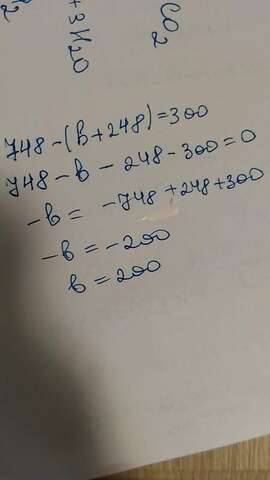 +3H2O
CO2
748-(b+248)=300
748-b-248-300=0
-b= -748+248+300
-b=-200
b=200